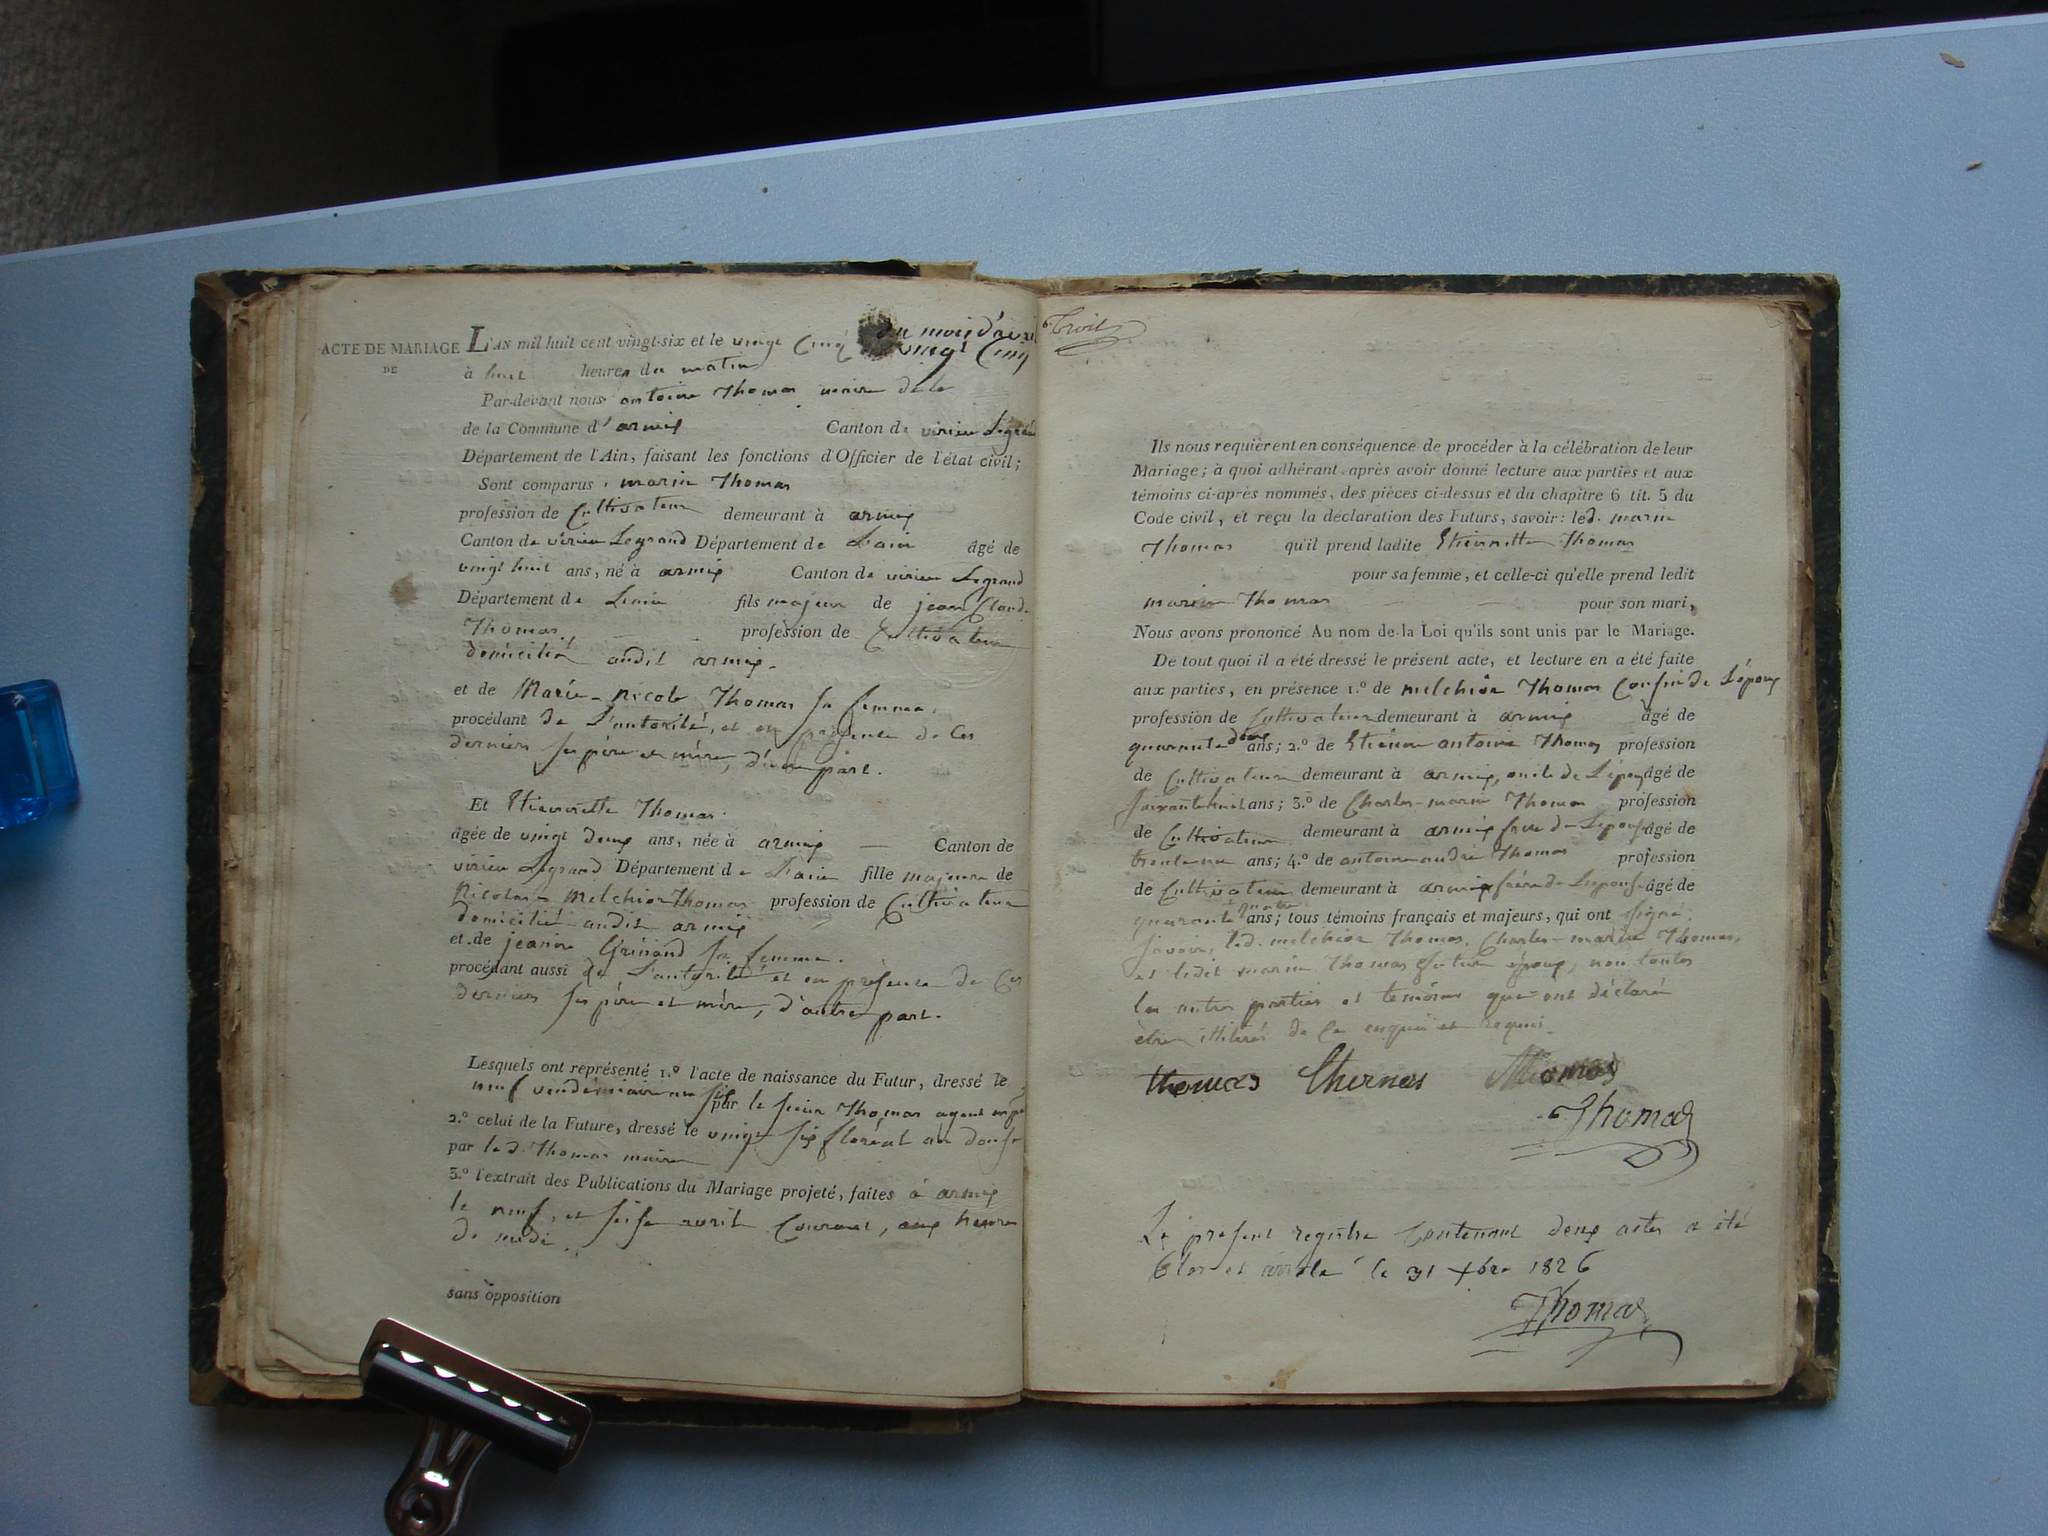 ACTE DE MARIAGE
DE
L'AN mil huit cent vingt-six et le vingt Cinq du mois d'avril
vingt Cinq
à huit heures du matin
Par-devant nous antoine Thomas maire de la
de la Commune d'armix Canton de virieu Legrand
Département de l'Ain, faisant les fonctions d'Officier de l'état civil;
Sont comparus, marin Thomas
profession de Cultivateur demeurant à armix
Canton de virieu Legrand Département de L'ain âgé de
vingt huit ans, né à armix Canton de virieu Legrand
Département de L'ain fils majeur de jean Claude
Thomas profession de Cultivateur
domicilié audit armix.
et de Marie-nicole Thomas sa femme,
procédant de L'autorité, et en présence de Ces
derniers ses père et mère, d'une part.
Et Etiennette Thomas
âgée de vingt deux ans, née à armix — Canton de
virieu Legrand Département de L'ain fille majeure de
Nicolas Melchior Thomas profession de Cultivateur
domicilié audit armix
et de jeanne Grinand sa femme.
procédant aussi de L'autorité et en présence de Ces
derniers ses père et mère, d'autre part.
Lesquels ont représenté 1.º l'acte de naissance du Futur, dressé le
neuf vendémiaire an six par le sieur Thomas agent
2.º celui de la Future, dressé le vingt six floréal an douse
par led. Thomas maire
3.º l'extrait des Publications du Mariage projeté, faites à armix
le neuf, et seise avril Courant, aux heures
de midi.
sans opposition
Troit
Ils nous requièrent en conséquence de procéder à la célébration de leur
Mariage; à quoi adhérant après avoir donné lecture aux parties et aux
témoins ci-après nommés, des pièces ci-dessus et du chapitre 6 tit. 5 du
Code civil, et reçu la déclaration des Futurs, savoir: led. marin
Thomas qu'il prend ladite Etiennette Thomas
pour sa femme, et celle-ci qu'elle prend ledit
marin Thomas — pour son mari,
Nous avons prononcé Au nom de la Loi qu'ils sont unis par le Mariage.
De tout quoi il a été dressé le présent acte, et lecture en a été faite
aux parties, en présence 1.º de melchior Thomas Cousin de L'époux
profession de Cultivateur demeurant à armix âgé de
quarante deux ans; 2.º de Etienne antoine Thomas profession
de Cultivateur demeurant à armix, oncle de L'époux âgé de
soixante huit ans; 3.º de Charles-marin Thomas profession
de Cultivateur demeurant à armix frere de L'epouse âgé de
trente un ans; 4.º de antoine andré Thomas profession
de Cultivateur demeurant à armix frère de L'epouse âgé de
quarante quatre ans; tous témoins français et majeurs, qui ont signé,
savoir, led. melchior Thomas, Charles-marin Thomas,
et ledit marin Thomas futur époux, non toutes
les autres parties et temoins qui ont déclaré
être illiterés de Ce enquis et requis.
thomas thomas Thomas
Thomas
Le present registre Contenant deux actes a été
Clos et arrêté le 31 Xbre 1826
Thomas